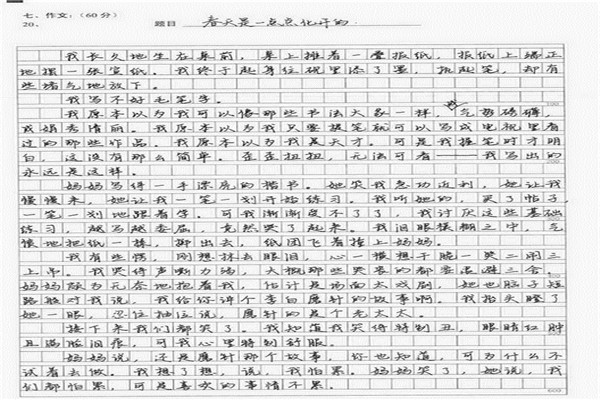 七、作文：（60分）
20. 题目 春天是一点点化开的
我长久地坐在桌前，桌上摊着一叠报纸，报纸上端正
地摆一张宣纸。我终于起身往砚里添了墨，执起笔，却有
些堵气地放下。
我写不好毛笔字。
我原本以为我可以像那些书法大家一样，或气势磅礴，
或娟秀清丽。我原本以为我只要提笔就可以写成电视里看
过的那些作品。我原本以为我是天才。可是我提笔时才明
白，这没有那么简单。歪歪扭扭，无法可看——我写出的
永远是这样。
妈妈写得一手漂亮的楷书。她笑我急功近利，她让我
慢慢来，她让我一笔一划开始练习。我听她的，买了帖子，
一笔一划地跟着学。可我渐渐受不了了，我讨厌这些基础
练习，越写越委屈，竟然哭了起来。我泪眼模糊之中，气
愤地把纸一揉，掷出去，纸团飞着撞上妈妈。
我有些愣，刚想抹去眼泪，心一横想干脆一哭二闹三
上吊。我哭得声嘶力竭，大概那些哭丧的都要退避三舍。
妈妈颇为无奈地抱着我，估计是场面太戏剧，她也脑子短
路般对我说，我给你讲个李白磨针的故事啊。我抬头瞪了
她一眼，忍住抽泣说，磨针的是个老太太。
接下来我们都笑了。我知道我哭得特别丑，眼睛红肿
且满脸泪痕，可我心里特别舒服。
妈妈说，还是磨针那个故事，你也知道，可为什么不
试着去做。我想了想，说，我怕累。妈妈笑了，她说，我
们都怕累，可是喜欢的事情不累。